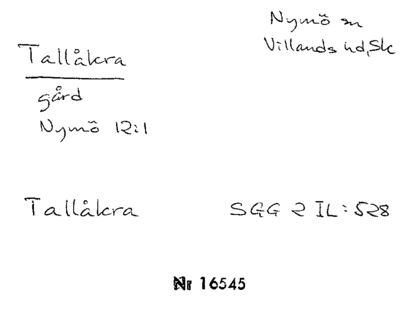 Nymö sn
Villands hd, Sk
Tallåkra
gård
Nymö 12:1
Tallåkra SGG 2 IL:528
Nr 16545